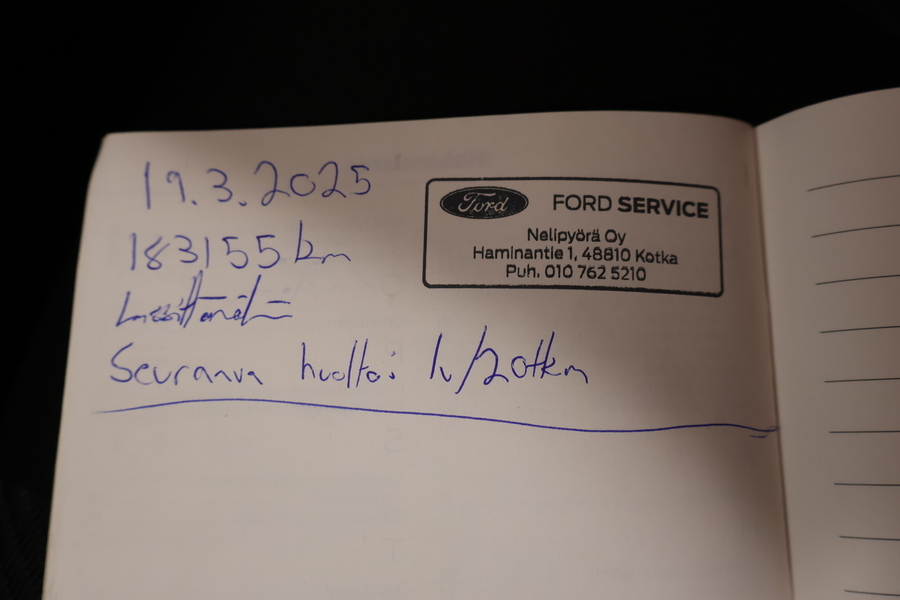 19.3.2025
183155 km
Seuraava huolto: 1v/20tkm
Ford FORD SERVICE
Nelipyörä Oy
Haminantie 1, 48810 Kotka
Puh. 010 762 5210